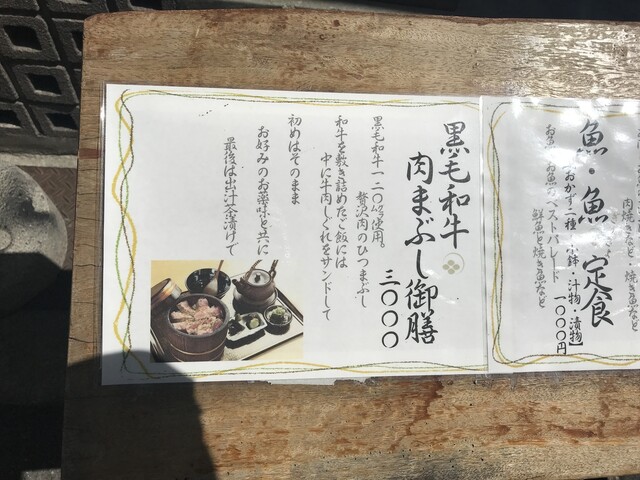 焼き魚など
肉焼きなど
魚・魚 定食
おかず二種・小鉢・汁物・漬物】
一〇〇〇円
お魚・お魚ベストパレード
鮮魚と焼き魚など
黒毛和牛
肉まぶし御膳
三〇〇〇
黒毛和牛一二〇㌘使用。
贅沢肉のひつまぶし
和牛を敷き詰めたご飯には
中に牛肉しぐれをサンドして
初めはそのまま
お好みのお薬味と共に
最後は出汁茶漬けで